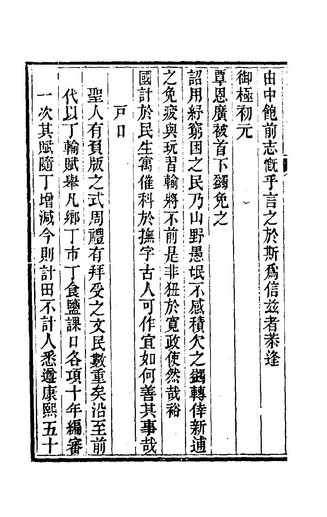 由中飽前志慨乎言之於斯為信茲者恭逢
御極初元
覃恩廣被首下蠲免之
詔用紓窮困之民乃山野愚氓不感積欠之蠲轉倖新逋
之免疲與玩習輸將不前是非狃於寬政使然哉裕
國計於民生寓催科於撫字古人可作宜如何善其事哉
戸口
聖人有負版之式周禮有拜受之文民數重矣沿至前
代以丁輸賦舉凡鄉丁市丁食鹽課口各項十年編審
一次其賦隨丁增減今則計田不計人悉遵康熙五十